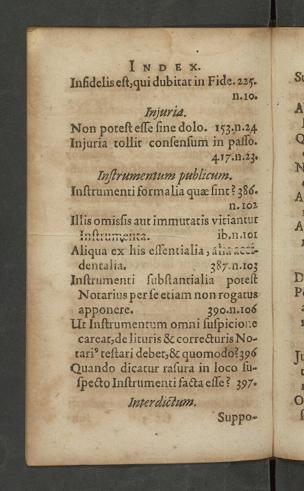 INDEX.
Infidelis est, qui dubitat in Fide. 225.
n.10.
Injuria.
Non potest esse sine dolo. 153.n.24
Injuria tollit consensum in passo.
417.n.23.
Instrumentum publicum.
Instrumenti formalia quæ sint? 386.
n.102
Illis omissis aut immutatis vitiantur
Instrumenta. ib.n.101
Aliqua ex his essentialia, alia acci-
dentalia. 387.n.103
Instrumenti substantialia potest
Notarius per se etiam non rogatus
apponere. 390.n.106
Ut Instrumentum omni suspicione
careat, de lituris & correcturis No-
tariꝰ testari debet, & quomodo? 396
Quando dicatur rasura in loco su-
specto Instrumenti facta esse? 397.
Interdictum.
Suppo-